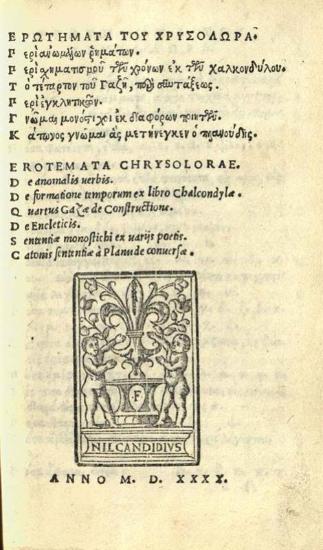 ΕΡΩΤΗΜΑΤΑ ΤΟΥ ΧΡΥΣΟΛΩΡΑ·
Περὶ ἀνωμάλων ῥημάτων.
Περὶ χηματισμοῦ τῶν χρόνων ἐκ τοῦ Χαλκονδύλου.
Τὸ τέταρτον τοῦ Γαζῆ, περὶ συντάξεως.
Περὶ ἐγκλιτικῶν.
Γνῶμαι μονοστιχοι ἐκ διαφόρων ποιητῶν.
Κάτωνος γνῶμαι ἃς μετήνεγκεν ὁ πλανούδης.
EROTEMATA CHRYSOLORAE.
De anomalis uerbis.
De formatione temporum ex libro Chalcondylæ.
Quartus Gazæ de Constructione.
De Encleticis.
Sententiæ monostichi ex varijs poetis.
Catonis sententiæ à Planude conuersæ.
F
NIL CANDIDIVS
ANNO M. D. XXXX.